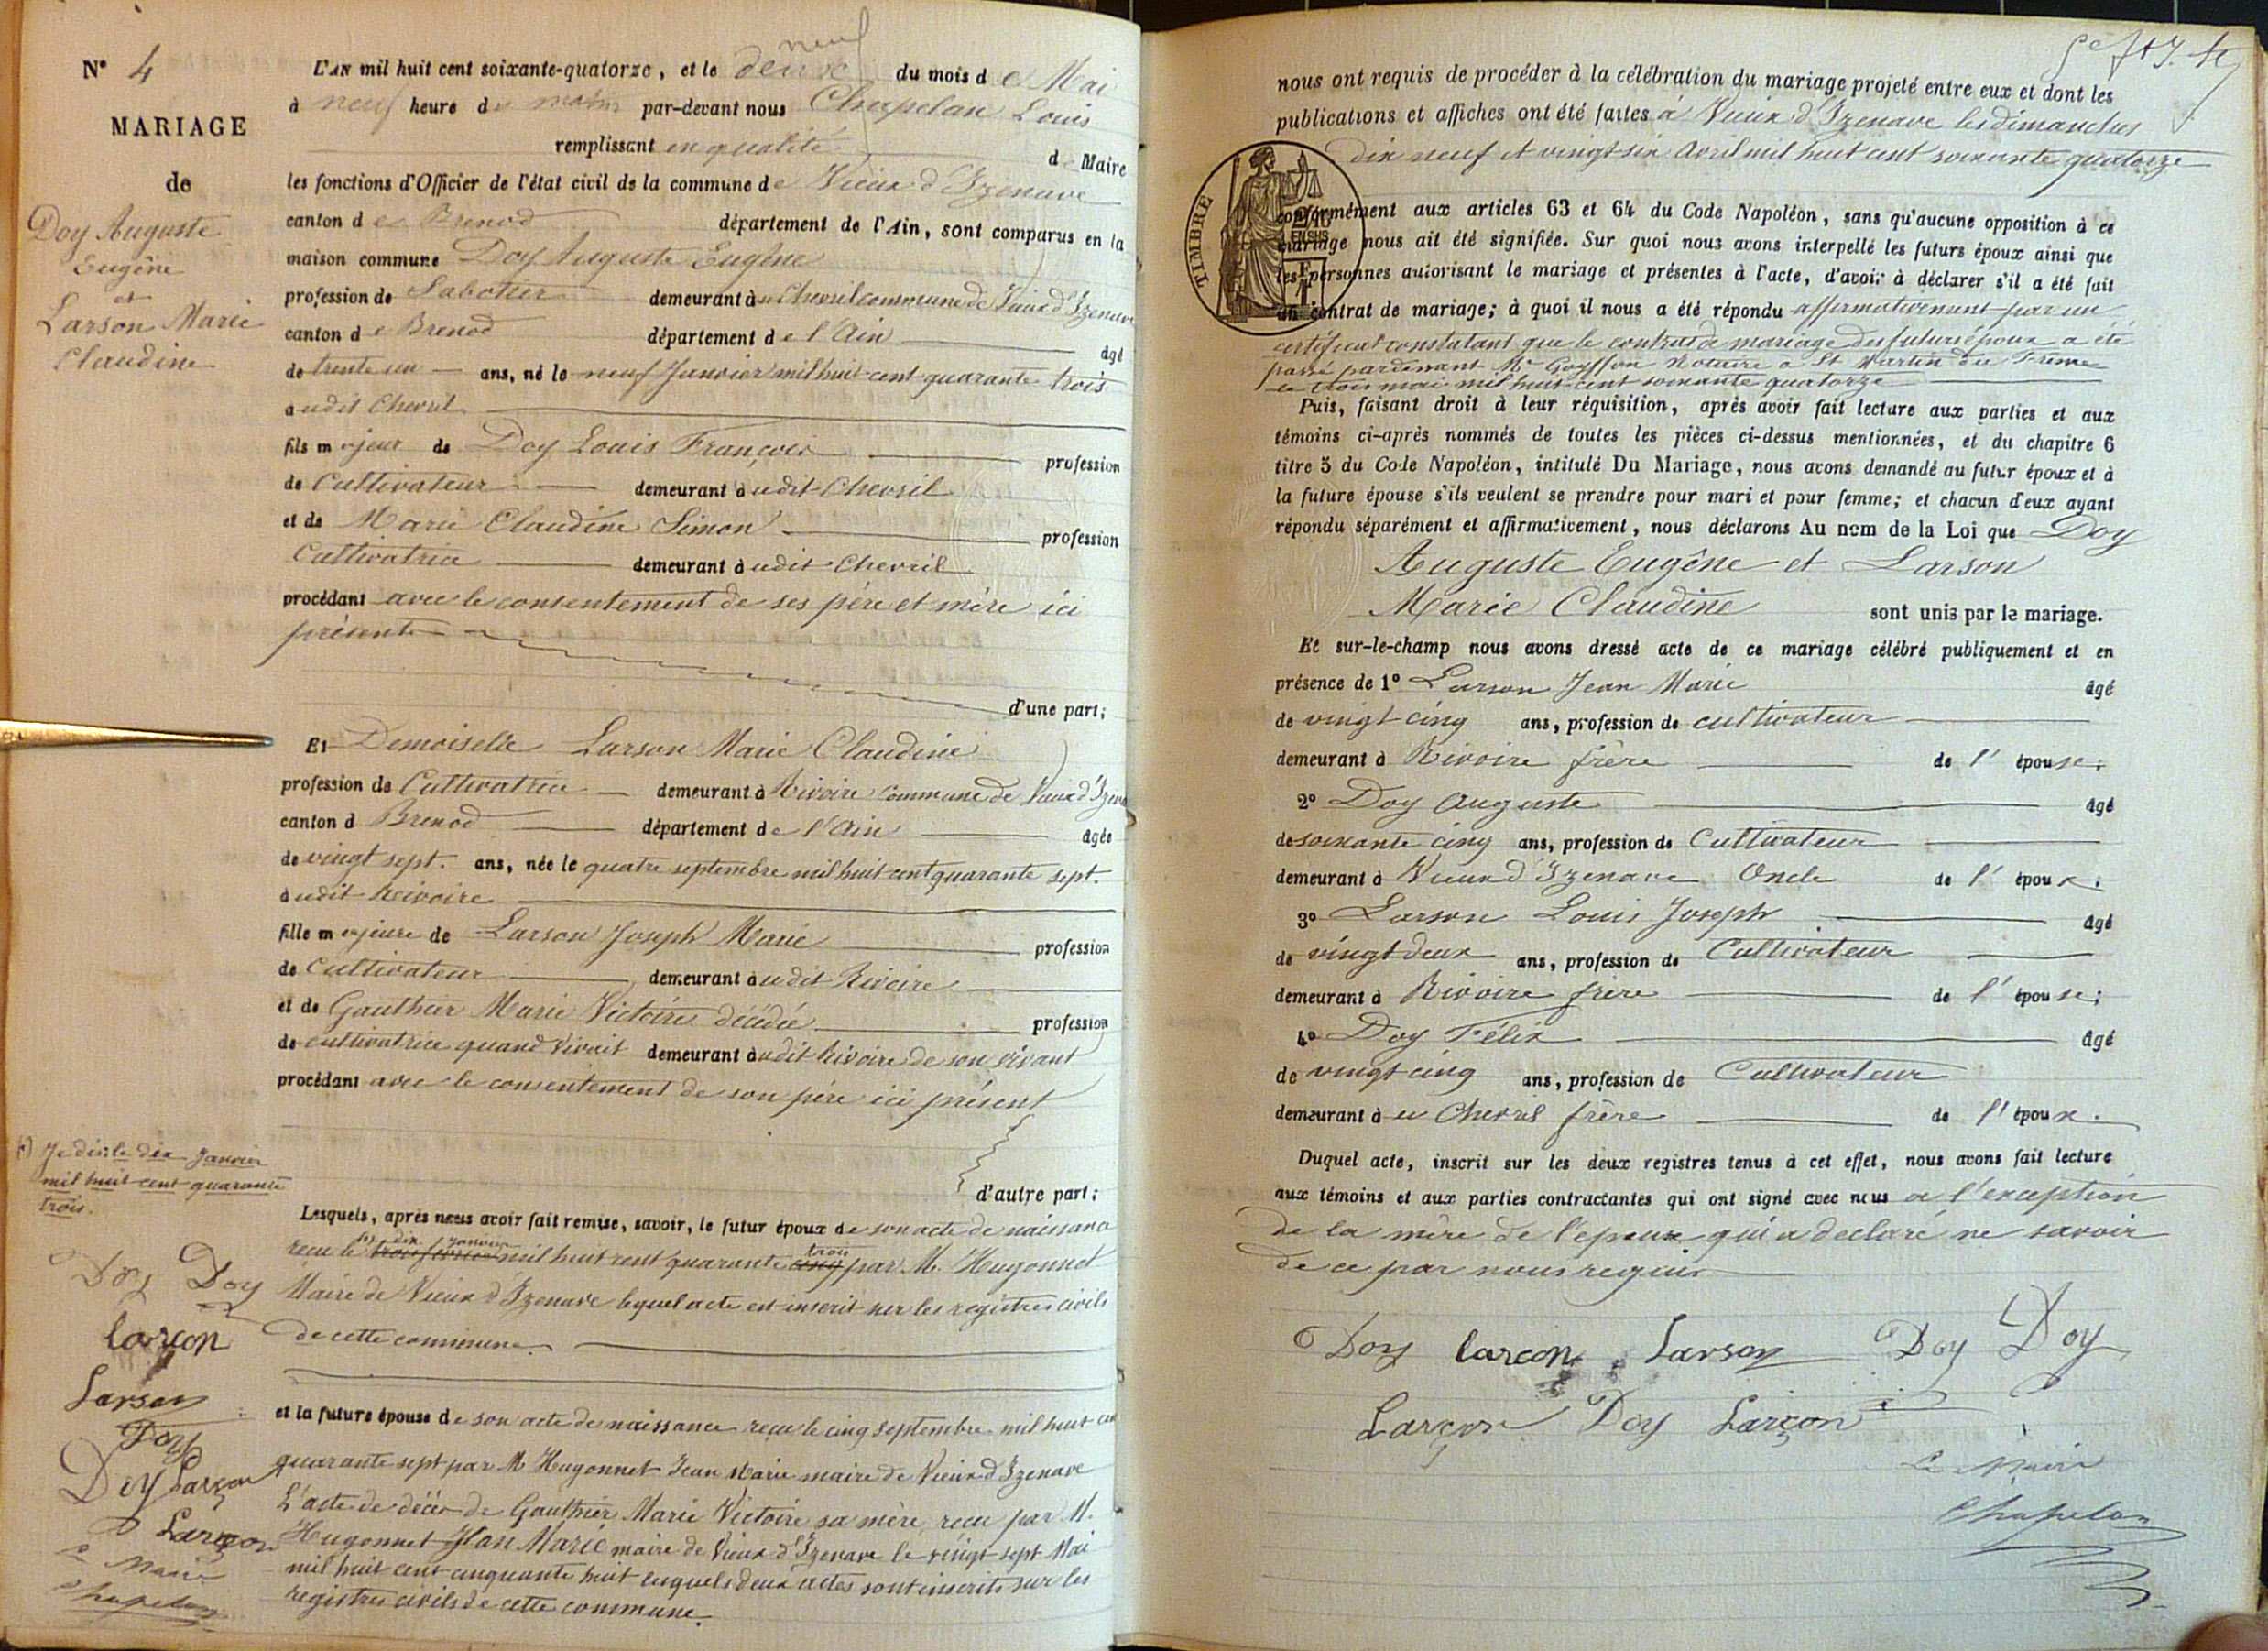 N° 4
MARIAGE
de
Doy Auguste
Eugène
et
Larson Marie
Claudine
neuf
L'AN mil huit cent soixante-quatorze, et le deux du mois de Mai
à neuf heure du matin par-devant nous Chapelan Louis
remplissant en qualité de Maire
les fonctions d'Officier de l'état civil de la commune de Vieux d'Izenave
canton de Brenod département de l'Ain, sont comparus en la
maison commune Doy Auguste Eugène
profession de Sabotier demeurant à Chevril commune de Vieux d'Izenave
canton de Brenod département de l'Ain âgé
de trente un ans, né le neuf Janvier mil huit cent quarante trois
audit Chevril
fils majeur de Doy Louis François profession
de Cultivateur demeurant audit Chevril
et de Marie Claudine Simon profession
Cultivatrice demeurant audit Chevril
procédant avec le consentement de ses père et mère ici
présents
d'une part;
Et Demoiselle Larson Marie Claudine
profession de Cultivatrice demeurant à Rivoire commune de Vieux d'Izena
canton d Brenod département de l'Ain âgée
de vingt sept. ans, née le quatre septembre mil huit cent quarante sept.
audit Rivoire
fille majeure de Larson Joseph Marie profession
de Cultivateur demeurant audit Rivoire
et de Gauthier Marie Victoire décédée profession
de cultivatrice quand vivait demeurant audit Rivoire de son vivant
procédant avec le consentement de son père ici présent
d'autre part;
Je dis le dix Janvier
mil huit cent quarante
trois.
Lesquels, après nous avoir fait remise, savoir, le futur époux de son acte de naissance
dix janvier trois
reçu le mil huit cent quarante cinq par M. Hugonnet
Maire de Vieux d'Izenave lequel acte est inscrit sur les registres civils
de cette commune.
et la future épouse de son acte de naissance reçu le cinq septembre mil huit cen
quarante sept par M Hugonnet Jean Marie maire de Vieux d'Izenave
L'acte de décès de Gauthier Marie Victoire sa mère, reçu par M.
Hugonnet Jean Marie maire de Vieux d'Izenave le vingt sept Mai
mil huit cent cinquante huit lesquels deux actes sont inscrits sur les
registres civils de cette commune.
Doy Doy
Larçon
Larson
Doy
Doy Larçon
Larçon
Le Maire
Chapelan
nous ont requis de procéder à la célébration du mariage projeté entre eux et dont les
publications et affiches ont été faites à Vieux d'Izenave les dimanches
dix neuf et vingt six Avril mil huit cent soixante quatorze
TIMBRE
2/10
EN SUS
conformément aux articles 63 et 64 du Code Napoléon, sans qu'aucune opposition à ce
mariage nous ait été signifiée. Sur quoi nous avons interpellé les futurs époux ainsi que
les personnes autorisant le mariage et présentes à l'acte, d'avoir à déclarer s'il a été fait
un contrat de mariage; à quoi il nous a été répondu affirmativement par un
certificat constatant que le contrat de mariage des futurs époux a été
passé pardevant Me Goyffon Notaire à St Martin du Frene
le trois mai mil huit cent soixante quatorze
Puis, faisant droit à leur réquisition, après avoir fait lecture aux parties et aux
témoins ci-après nommés de toutes les pièces ci-dessus mentionnées, et du chapitre 6
titre 5 du Code Napoléon, intitulé Du Mariage, nous avons demandé au futur époux et à
la future épouse s'ils veulent se prendre pour mari et pour femme; et chacun d'eux ayant
répondu séparément et affirmativement, nous déclarons Au nom de la Loi que Doy
Auguste Eugène et Larson
Marie Claudine sont unis par le mariage.
Et sur-le-champ nous avons dressé acte de ce mariage célébré publiquement et en
présence de 1° Larson Jean Marie âgé
de vingt cinq ans, profession de cultivateur
demeurant à Rivoire frère de l'épouse;
2° Doy Auguste âgé
de soixante cinq ans, profession de Cultivateur
demeurant à Vieux d'Izenave Oncle de l'époux;
3° Larson Louis Joseph âgé
de vingt deux ans, profession de Cultivateur
demeurant à Rivoire frère de l'épouse;
4° Doy Félix âgé
de vingt cinq ans, profession de Cultivateur
demeurant à Chevril frère de l'époux.
Duquel acte, inscrit sur les deux registres tenus à cet effet, nous avons fait lecture
aux témoins et aux parties contractantes qui ont signé avec nous à l'exception
de la mère de l'époux qui a declaré ne savoir
de ce par nous requis
Doy Larçon Larson Doy Doy
Larçon Doy Larçon
Le Maire
Chapelan